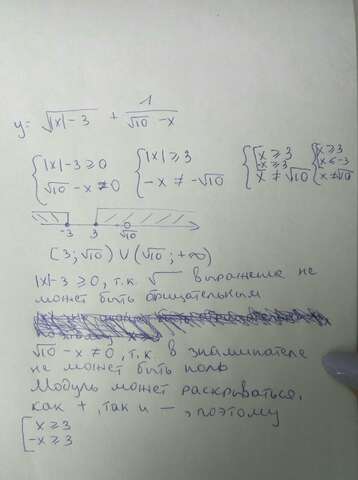 y = √|x|-3 + 1/(√10 - x)
{ |x|-3 ≥ 0
√10 - x ≠ 0
{ |x| ≥ 3
-x ≠ -√10
{ [ x ≥ 3
-x ≥ 3
x ≠ √10
{ [ x ≥ 3
x ≤ -3
x ≠ √10
-3 3 √10
[3; √10) U (√10; +∞)
|x|-3 ≥ 0, т.к. √ выражение не
может быть отрицательным
√10 - x ≠ 0, т.к. в знаменателе
не может быть ноль
Модуль может раскрываться,
как +, так и -, поэтому
[ x ≥ 3
-x ≥ 3